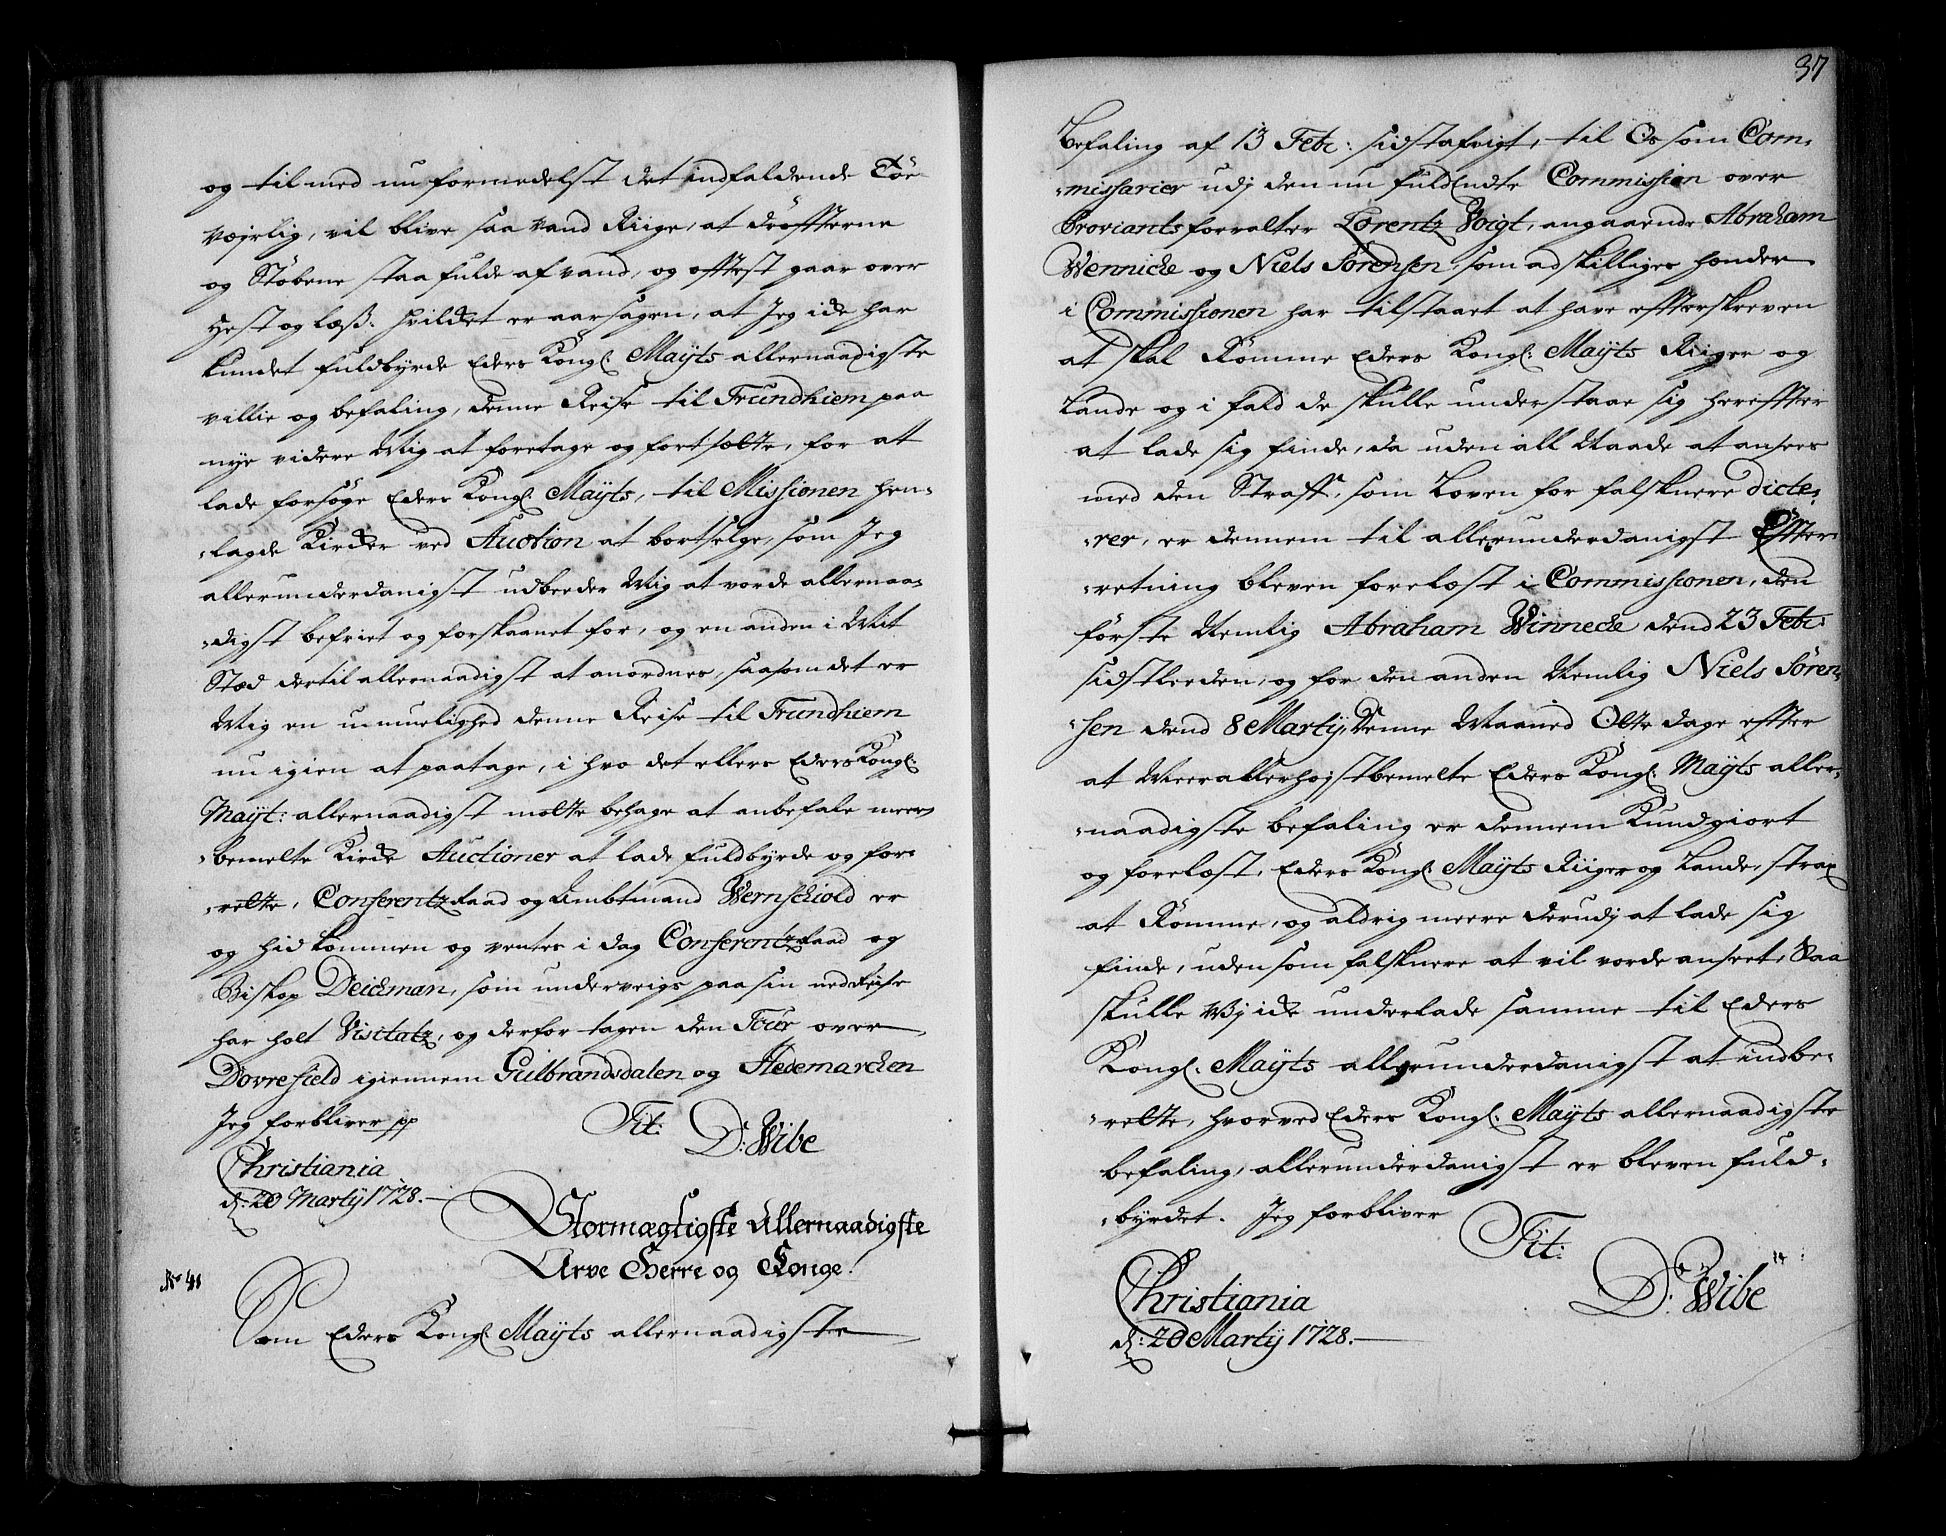 og til med nu formedelst det indfaldende Töe-
Vejrlig, vil blive saa vand Riige, at drøffterne
og Stöbene staa fulde af vand, og offtest gaar over
Hest og læß: hvildet er aarsagen, at Jeg icke har
kundet fuldbyrde Eders Kongl: Mayts allernaadigste
villie og befaling, denne Reise til Trundhiem paa
nye videre Mig at foretage og fortsætte, for at
lade forsøge Eders Kongl: Mayts, til Missionen hen-
-lagde Kircker ved Auction at bortselge, som Jeg
allerunderdanigst udbeeder Mig at vorde allernaa-
-digst befriet og forskaanet for, og en anden i Mit
Stæd dertil allernaadigst at anordnes, saasom det er
Mig en umuelighed denne Reise til Trundhiem
nu igien at paatage, i hvo det ellers Eders Kongl:
Mayt: allernaadigst motte behage at anbefale meer-
-bemelte Kircke Auctioner at lade fuldbyrde og for-
-rette, Conferentz Raad og Ambtmand Vernschiold er
og hid kommen og ventes i dag Conferentz Raad og
Biskop Deichman, som underveigs paa sin ned Reise
har holt Visitatz, og derfor tagen den Tour over
Dovrefield igiennem Gulbrandsdalen og Hedemarchen
Jeg forbliver pp Tit:
D: Wibe
Christiania
d: 20 Martij 1728.
Stormægtigste Allernaadigste
Arve Herre og Konge!
No 41
Som Eders Kongl: Mayts allernaadigste
37
Befaling af 13 Febr: sidstafvigt, til Os som Com-
-missarier udj den nu fuldendte Commission over
Proviantsforvalter Lorentz Voigt, angaaende Abraham
Wennicke og Niels Sørensen, som adskilliges hænder
i Commissionen har tilstaaet at have effterskreven
at skal Rømme Eders Kongl: Mayts Riiger og
Lande og i fald de skulle understaae sig hereffter
at lade sig finde, da uden all Naade at ansees
med den Straff, som Loven for falsknere dicte-
-rer, er dennem til allerunderdanigst Effter-
-retning bleven forelæst i Commissionen, den
første Nemlig Abraham Winnecke dend 23 Febr:
sidstleeden, og for den anden Nemlig Niels Søren-
-sen dend 8 Martij, denne Maaned Otte dage effter
at Meerallerhøjstbemelte Eders Kongl: Mayts aller-
-naadigste befaling er dennem Kundgiort
og forelæst, Eders Kongl: Mayts Riiger og Lande, strax
at Rømme, og aldrig meere derudj at lade sig
finde, uden som falsknere at vil vorde anseet, Saa
skulle Vj icke underlade samme til Eders
Kongl: Mayts allerunderdanigst at indbe-
-rette, hvorved Eders Kongl: Mayts allernaadigste
befaling, allerunderdanigst er bleven fuld-
-byrdet. Jeg forbliver
Tit:
D: Wibe
Christiania
d: 20 Martij 1728.